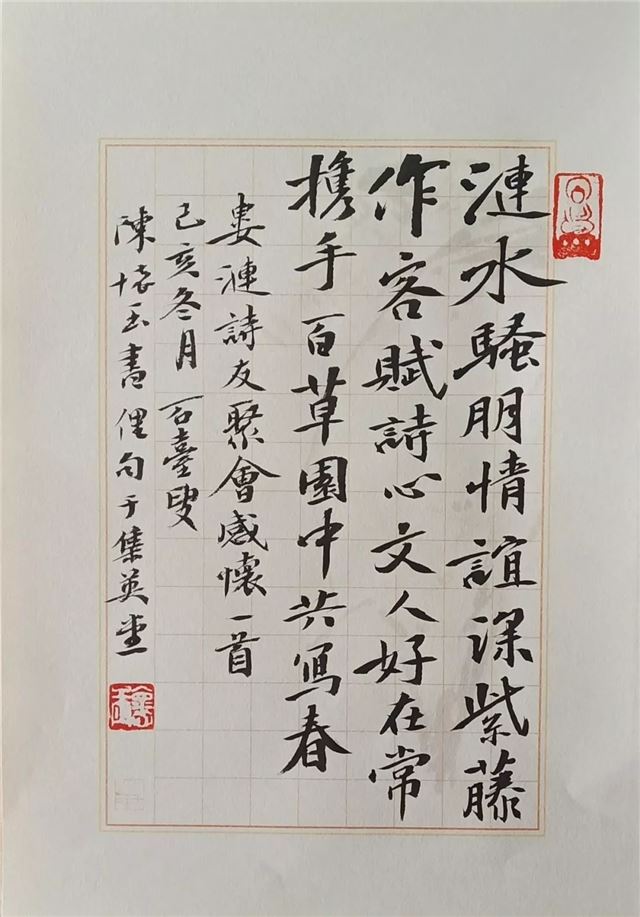 漣水騷朋情誼深紫藤
作客賦詩心文人好在常
携手百草園中共寫春
婁漣詩友聚會感懷一首
己亥冬月 石臺叟
陳懷玉書俚句于集英堂